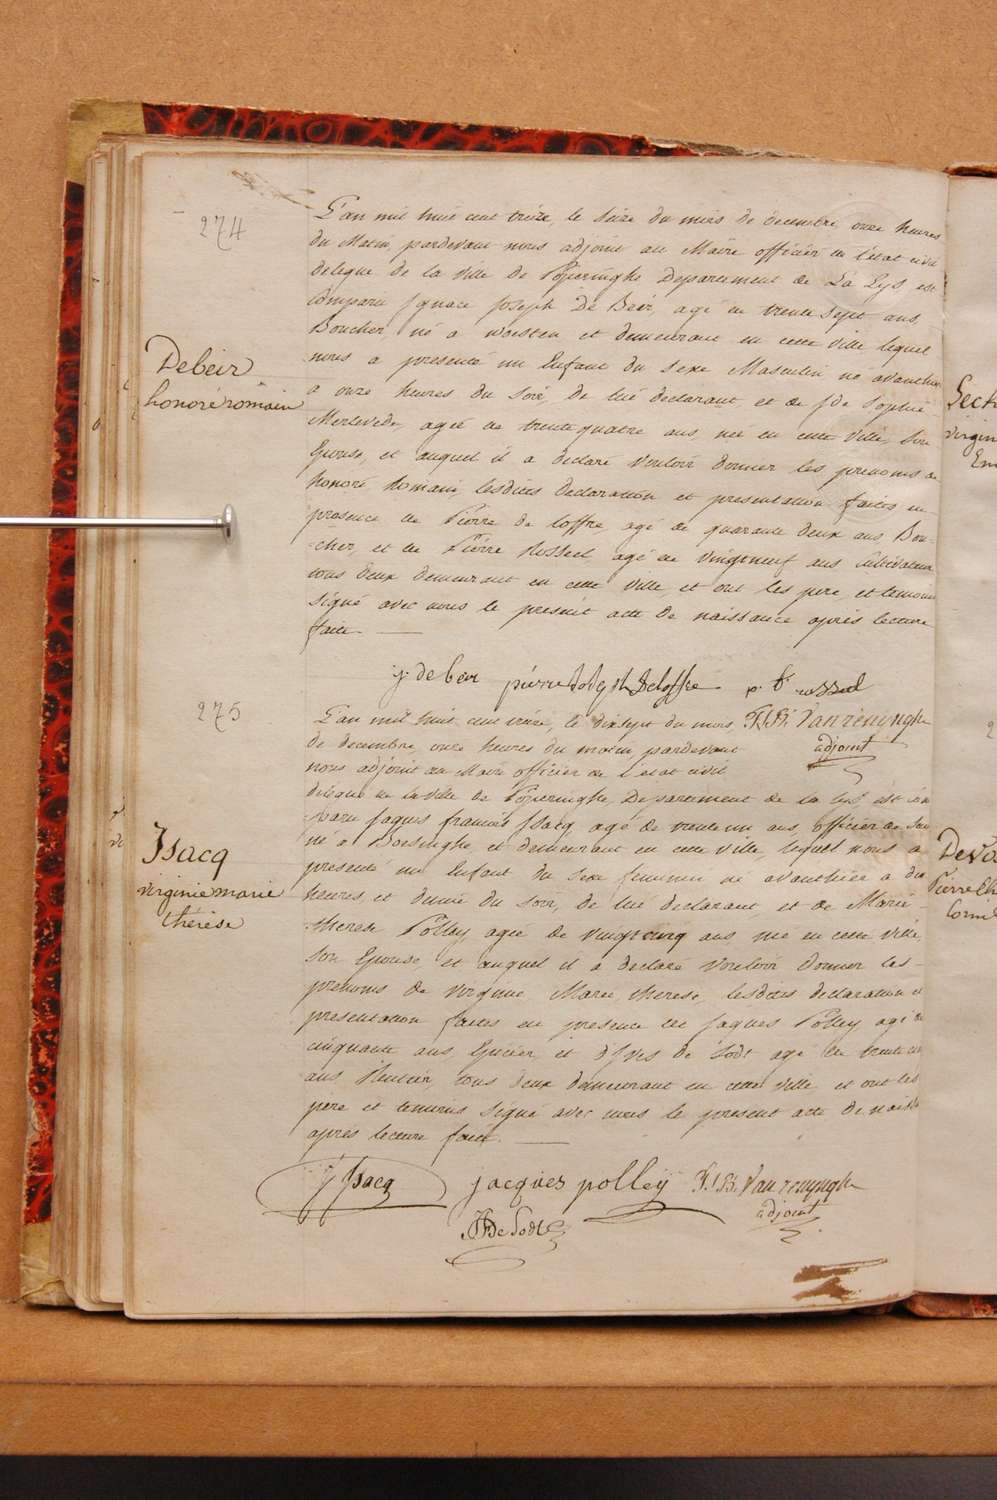 274
L'an mil huit cent treize, le seize du mois de decembre, onze heures
du Matin, pardevant nous adjoint au Maire officier de l'état civil
delegué de la ville de Poperinghe Departement de La Lys, est
Comparu Ignace Joseph De Beir, agé de trente sept ans,
Boucher, né a woesten et demeurant en cette ville lequel
nous a presenté un Enfant du sexe Masculin né avanthier
a onze heures du Soir, de lui declarant et de Sophie
Merlevede, agée de trente quatre ans, née en cette ville, Son
Epouse, et auquel il a declaré Vouloir donner les prenoms de
honoré Romain, lesdites declaration et presentation faites en
presence de Pierre de loffre, agé de quarante deux ans Bou-
-cher, et de Pierre Rosseel, agé de vingtneuf ans Cultivateur
tous deux demeurant en cette ville, et ont les pere, et temoins
signé avec nous le present acte de naissance après lecture
faite.
Debeir
honoré romain
j. de beir pierre Joseph Deloffre p. b. rosseel
275
L'an mil huit cent treize, le dixsept du mois, F.J.B. Vanrenynghe
adjoint
de decembre, onze heures du matin, pardevant
nous adjoint au Maire officier de l'état civil
delegué de la ville de Poperinghe, Departement de la Lys, est com
-paru Jaques francois Isacq agé de trente un ans, officier de
né a Boesinghe, et demeurant en cette ville, lequel nous a
presenté un Enfant du sexe feminin né avanthier a dix
heures, et demie du soir, de lui declarant, et de Marie
therese Polley, agée de vingtcinq ans, née en cette ville
son Epouse, et auquel il a declaré Vouloir Donner les
prenoms de virginie, Marie, therese, lesdites declaration et
presentation faites en presence de Jaques Polley agé de
cinquante ans, Epicier, et d'Yves de Sodt agé de trente
ans, Rentier, tous deux demeurant en cette ville et ont les
pere et temoins signé avec nous le present acte de naiss
après lecture faite.
Isacq
virginie marie
thérèse
Isacq jacques polleÿ F.J.B. Vanrenynghe
adjoint
De Sodt
Virgin
Em
DeVa
Pierre Ch
Corne